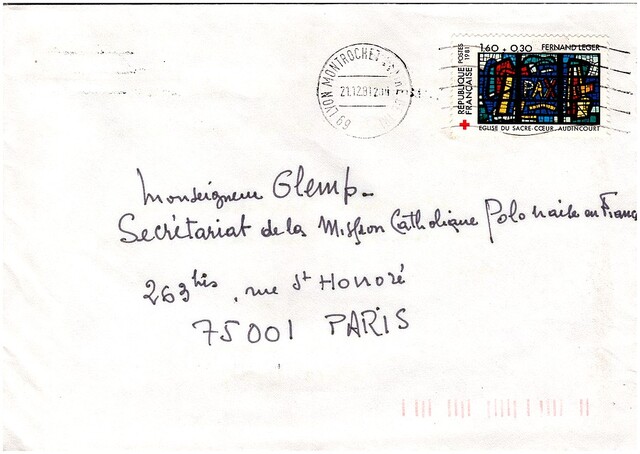 1,60 + 0,30 FERNAND LEGER
POSTES 1981
RÉPUBLIQUE FRANÇAISE
PAX
EGLISE DU SACRE-CŒUR. AUDINCOURT
69 LYON MONTROCHET
21.12.81
Monseigneur Glemp.
Secrétariat de la Mission Catholique Polonaise en France
263 bis, rue St Honoré
75001 PARIS